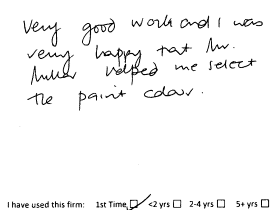 Very good work and I was
very happy tat Mr.
Miller helped me select
the paint colour.
I have used this firm: 1st Time ☑ <2 yrs ☐ 2-4 yrs ☐ 5+ yrs ☐